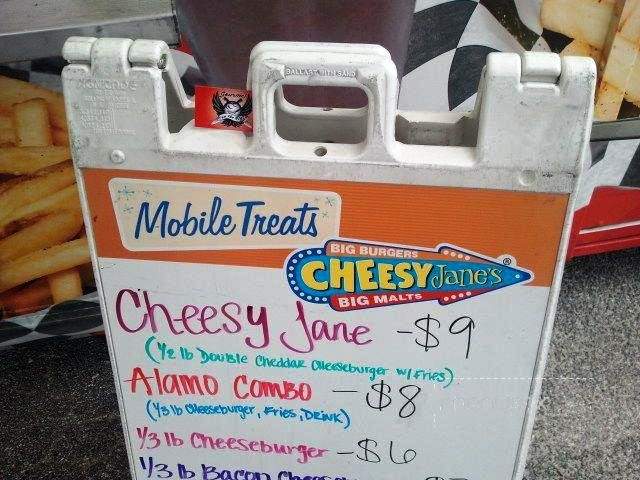 BALLAST WITH SAND
Mobile Treats
BIG BURGERS
CHEESY Jane's ®
BIG MALTS
Cheesy Jane - $9
(1/2 lb Double Cheddar Cheeseburger w/ Fries)
Alamo Combo - $8
(1/3 lb Cheeseburger, Fries, Drink)
1/3 lb Cheeseburger - $6
1/3 lb Bacon